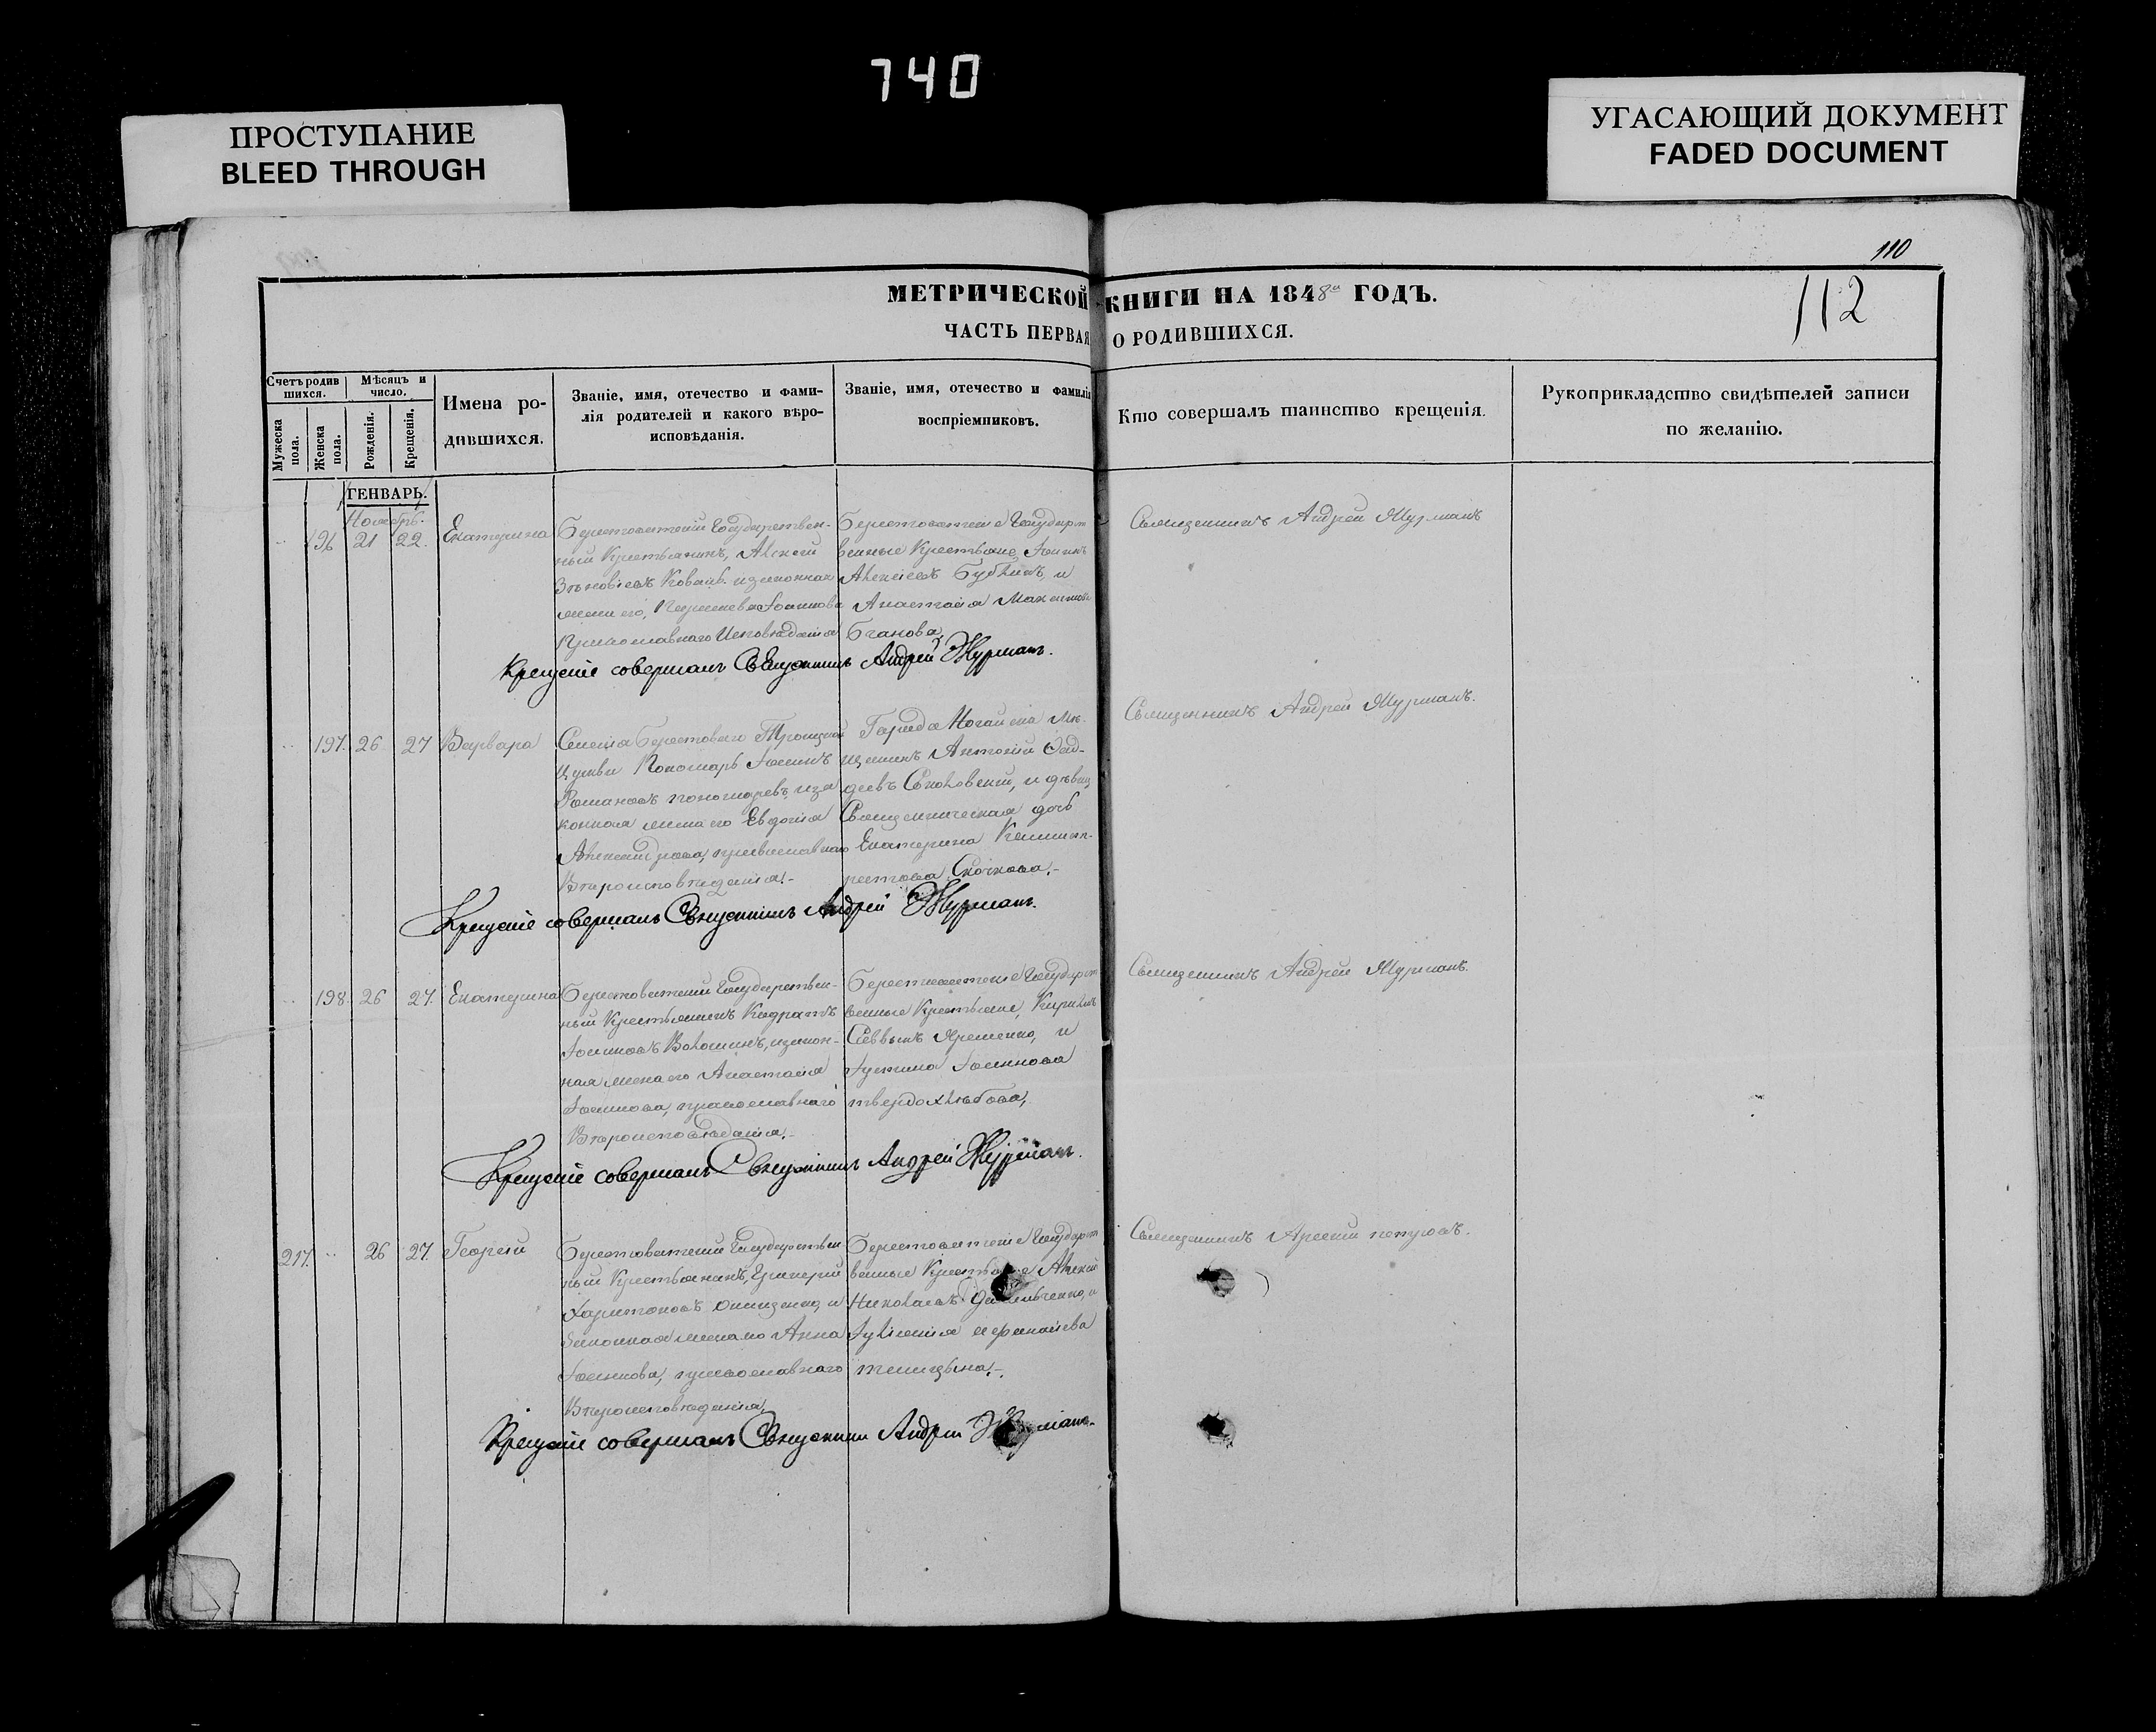 740
ПРОСТУПАНИЕ
BLEED THROUGH
УГАСАЮЩИЙ ДОКУМЕНТ
FADED DOCUMENT
110
112
МЕТРИЧЕСКОЙ КНИГИ НА 1848й ГОДЪ.
ЧАСТЬ ПЕРВАЯ О РОДИВШИХСЯ.
Счетъ родив
шихся.
Мужеска пола.
Женска пола.
Мѣсяцъ и
число.
Рожденія.
Крещенія.
Имена ро-
дившихся.
Званіе, имя, отечество и фами-
лія родителей и какого вѣро-
исповѣданія.
Званіе, имя, отечество и фамилія
воспріемниковъ.
Кто совершалъ таинство крещенія.
Рукоприкладство свидѣтелей записи
по желанію.
ГЕНВАРЬ.
Ноябрь.
196 21 22.
Екатерина
Берестоватский Государствен-
ный Крестьянинъ, Алексей
Зѣновіевъ Коваль. и законная
жена его, Іоаннова
Православнаго Исповѣданія
Берестоватскіе Государст
венные Крестьяне, Іоаннъ
Алексіевъ и
Анастасія
Священникъ Андрей Журманъ
Крещеніе совершалъ Священникъ Андрей Журманъ.
197. 26 27
Варвара
Селенія Берестоваго Троицкой
Церкви Пономарь Іоаннъ
Романовъ пономаревъ, и за
конная жена его Евдокія
Александрова, православнаго
Вѣроисповѣданія.-
Города Ногайска Мѣ-
щанинъ Антоній
и дѣвица
Священническая дочь
Екатерина
Священникъ Андрей Журманъ.
Крещеніе совершалъ Священникъ Андрей Журманъ.
198. 26 27.
Екатерина
Берестоватский Государствен-
ный Крестьянинъ Кодратъ
Іоанновъ Волошинъ, и закон-
ная жена его Анастасія
Іоаннова, православнаго
Вѣроисповѣданія.-
Берестоватскіе Государст
венные Крестьяне, Кириллъ
Саввинъ Яременко, и
Іустина Іоаннова
твердохлѣбова,
Священникъ Андрей Журманъ.
Крещеніе совершалъ Священникъ Андрей Журманъ.
217. 26 27.
Георгій
Берестоватский Государствен
ный Крестьянинъ, Григорій
Харитоновъ Онищенко, и
законная жена его Анна
Іоаннова, православнаго
Вѣроисповѣданія,
Берестоватскіе Государст
венные Крестьяне Алексей
Николаевъ и
Іуліанія
Священникъ Арсеній петровъ.
Крещеніе совершалъ Священникъ Андрей Журманъ.